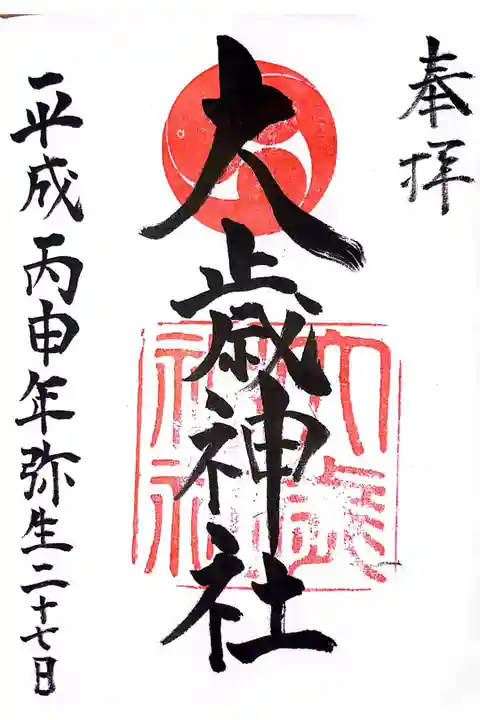 奉拝
大歳神社
平成丙申年弥生二十七日